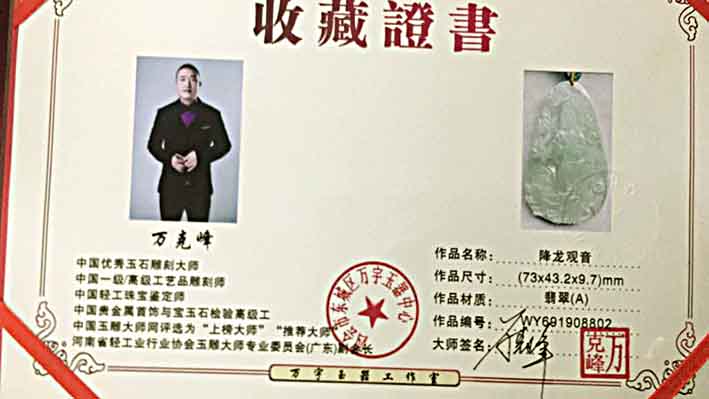 收藏證書
万克峰
中国优秀玉石雕刻大师
中国一级/高级工艺品雕刻师
中国轻工珠宝鉴定师
中国贵金属首饰与宝玉石检验高级工
中国玉雕大师网评选为“上榜大师”“推荐大师”
河南省轻工业行业协会玉雕大师专业委员会(广东)副会长
作品名称: 降龙观音
作品尺寸: (73x43.2x9.7)mm
作品材质: 翡翠(A)
作品编号: WY691908802
大师签名:
万克峰
市东城区万宇玉器中心
万宇玉器工作室